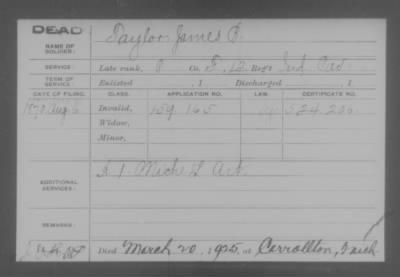 DEAD
NAME OF SOLDIER:
Taylor James P.
SERVICE:
Late rank, P Co. F, 12 Reg't Ind. Cav.
TERM OF SERVICE:
Enlisted , 1 Discharged , 1
DATE OF FILING. CLASS. APPLICATION NO. LAW. CERTIFICATE NO.
1870 Aug 6 Invalid, 159.165 524.206
Widow,
Minor,
ADDITIONAL SERVICES:
A 1 Mich. L Art.
REMARKS:
Died March 20, 1925, at Carrollton, Mich